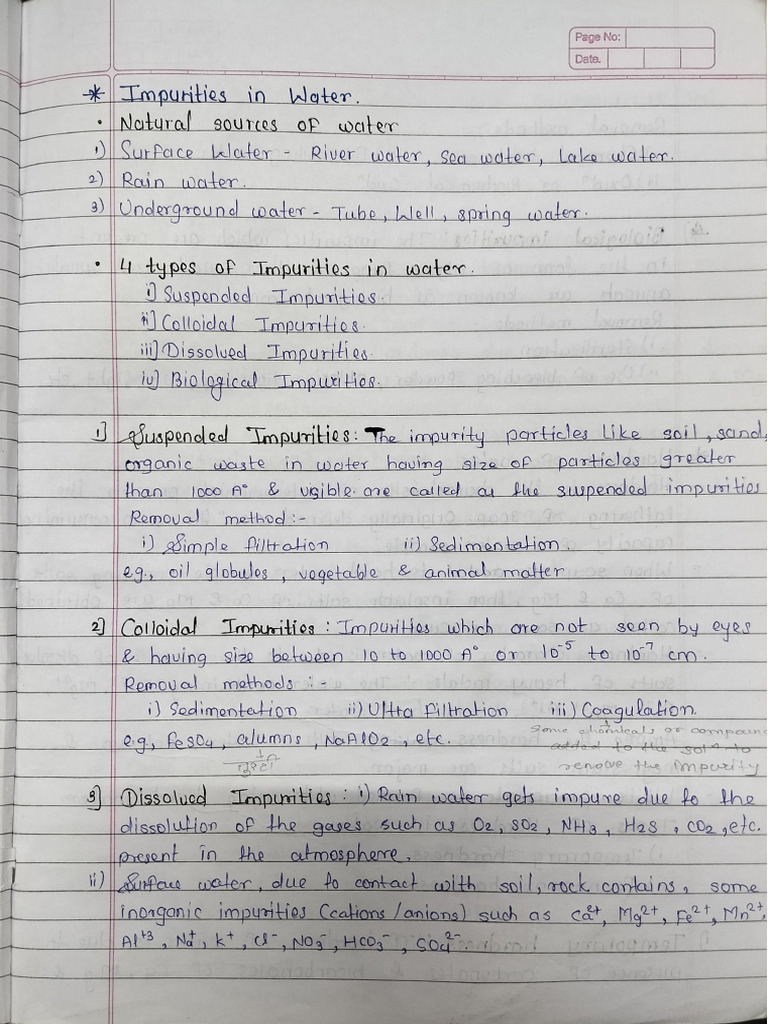 Page No:
Date.
* Impurities in Water.
• Natural sources of water
1) Surface Water - River water, sea water, Lake water.
2) Rain water.
3) Underground water - Tube, Well, spring water.
• 4 types of Impurities in water.
i] Suspended Impurities.
ii] Colloidal Impurities.
iii] Dissolved Impurities.
iv] Biological Impurities.
1] Suspended Impurities: The impurity particles like soil, sand,
organic waste in water having size of particles greater
than 1000 A° & visible are called as the suspended impurities
Removal method:-
i) Simple filtration ii) Sedimentation.
e.g., oil globules, vegetable & animal matter
2] Colloidal Impurities: Impurities which are not seen by eyes
& having size between 10 to 1000 A° or 10⁻⁵ to 10⁻⁷ cm.
Removal methods :-
i) Sedimentation ii) Ultra filtration iii) Coagulation.
Some chemicals or compound
e.g., FeSO4, alumns, NaAlO2, etc.
added to the solⁿ to
remove the impurity
3] Dissolved Impurities: i) Rain water gets impure due to the
dissolution of the gases such as O2, SO2, NH3, H2S, CO2, etc.
present in the atmosphere.
ii) Surface water, due to contact with soil, rock contains, some
inorganic impurities (cations/anions) such as Ca²⁺, Mg²⁺, Fe²⁺, Mn²⁺,
Al⁺³, Na⁺, K⁺, Cl⁻, NO3⁻, HCO3⁻, SO4²⁻.